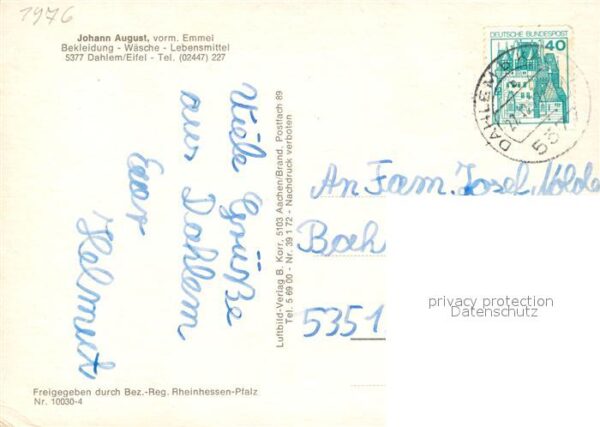 1976
Johann August, vorm. Emmel
Bekleidung - Wäsche - Lebensmittel
5377 Dahlem/Eifel - Tel. (02447) 227
Viele Grüße
aus Dahlem
Euer
Helmut
Luftbild-Verlag B. Korr, 5103 Aachen/Brand, Postfach 89
Tel. 5 69 00 - Nr. 39 1 72 - Nachdruck verboten
DEUTSCHE BUNDESPOST
40
DAHLEM
An Fam. Josef
5351
privacy protection
Datenschutz
Freigegeben durch Bez.-Reg. Rheinhessen-Pfalz
Nr. 10030-4